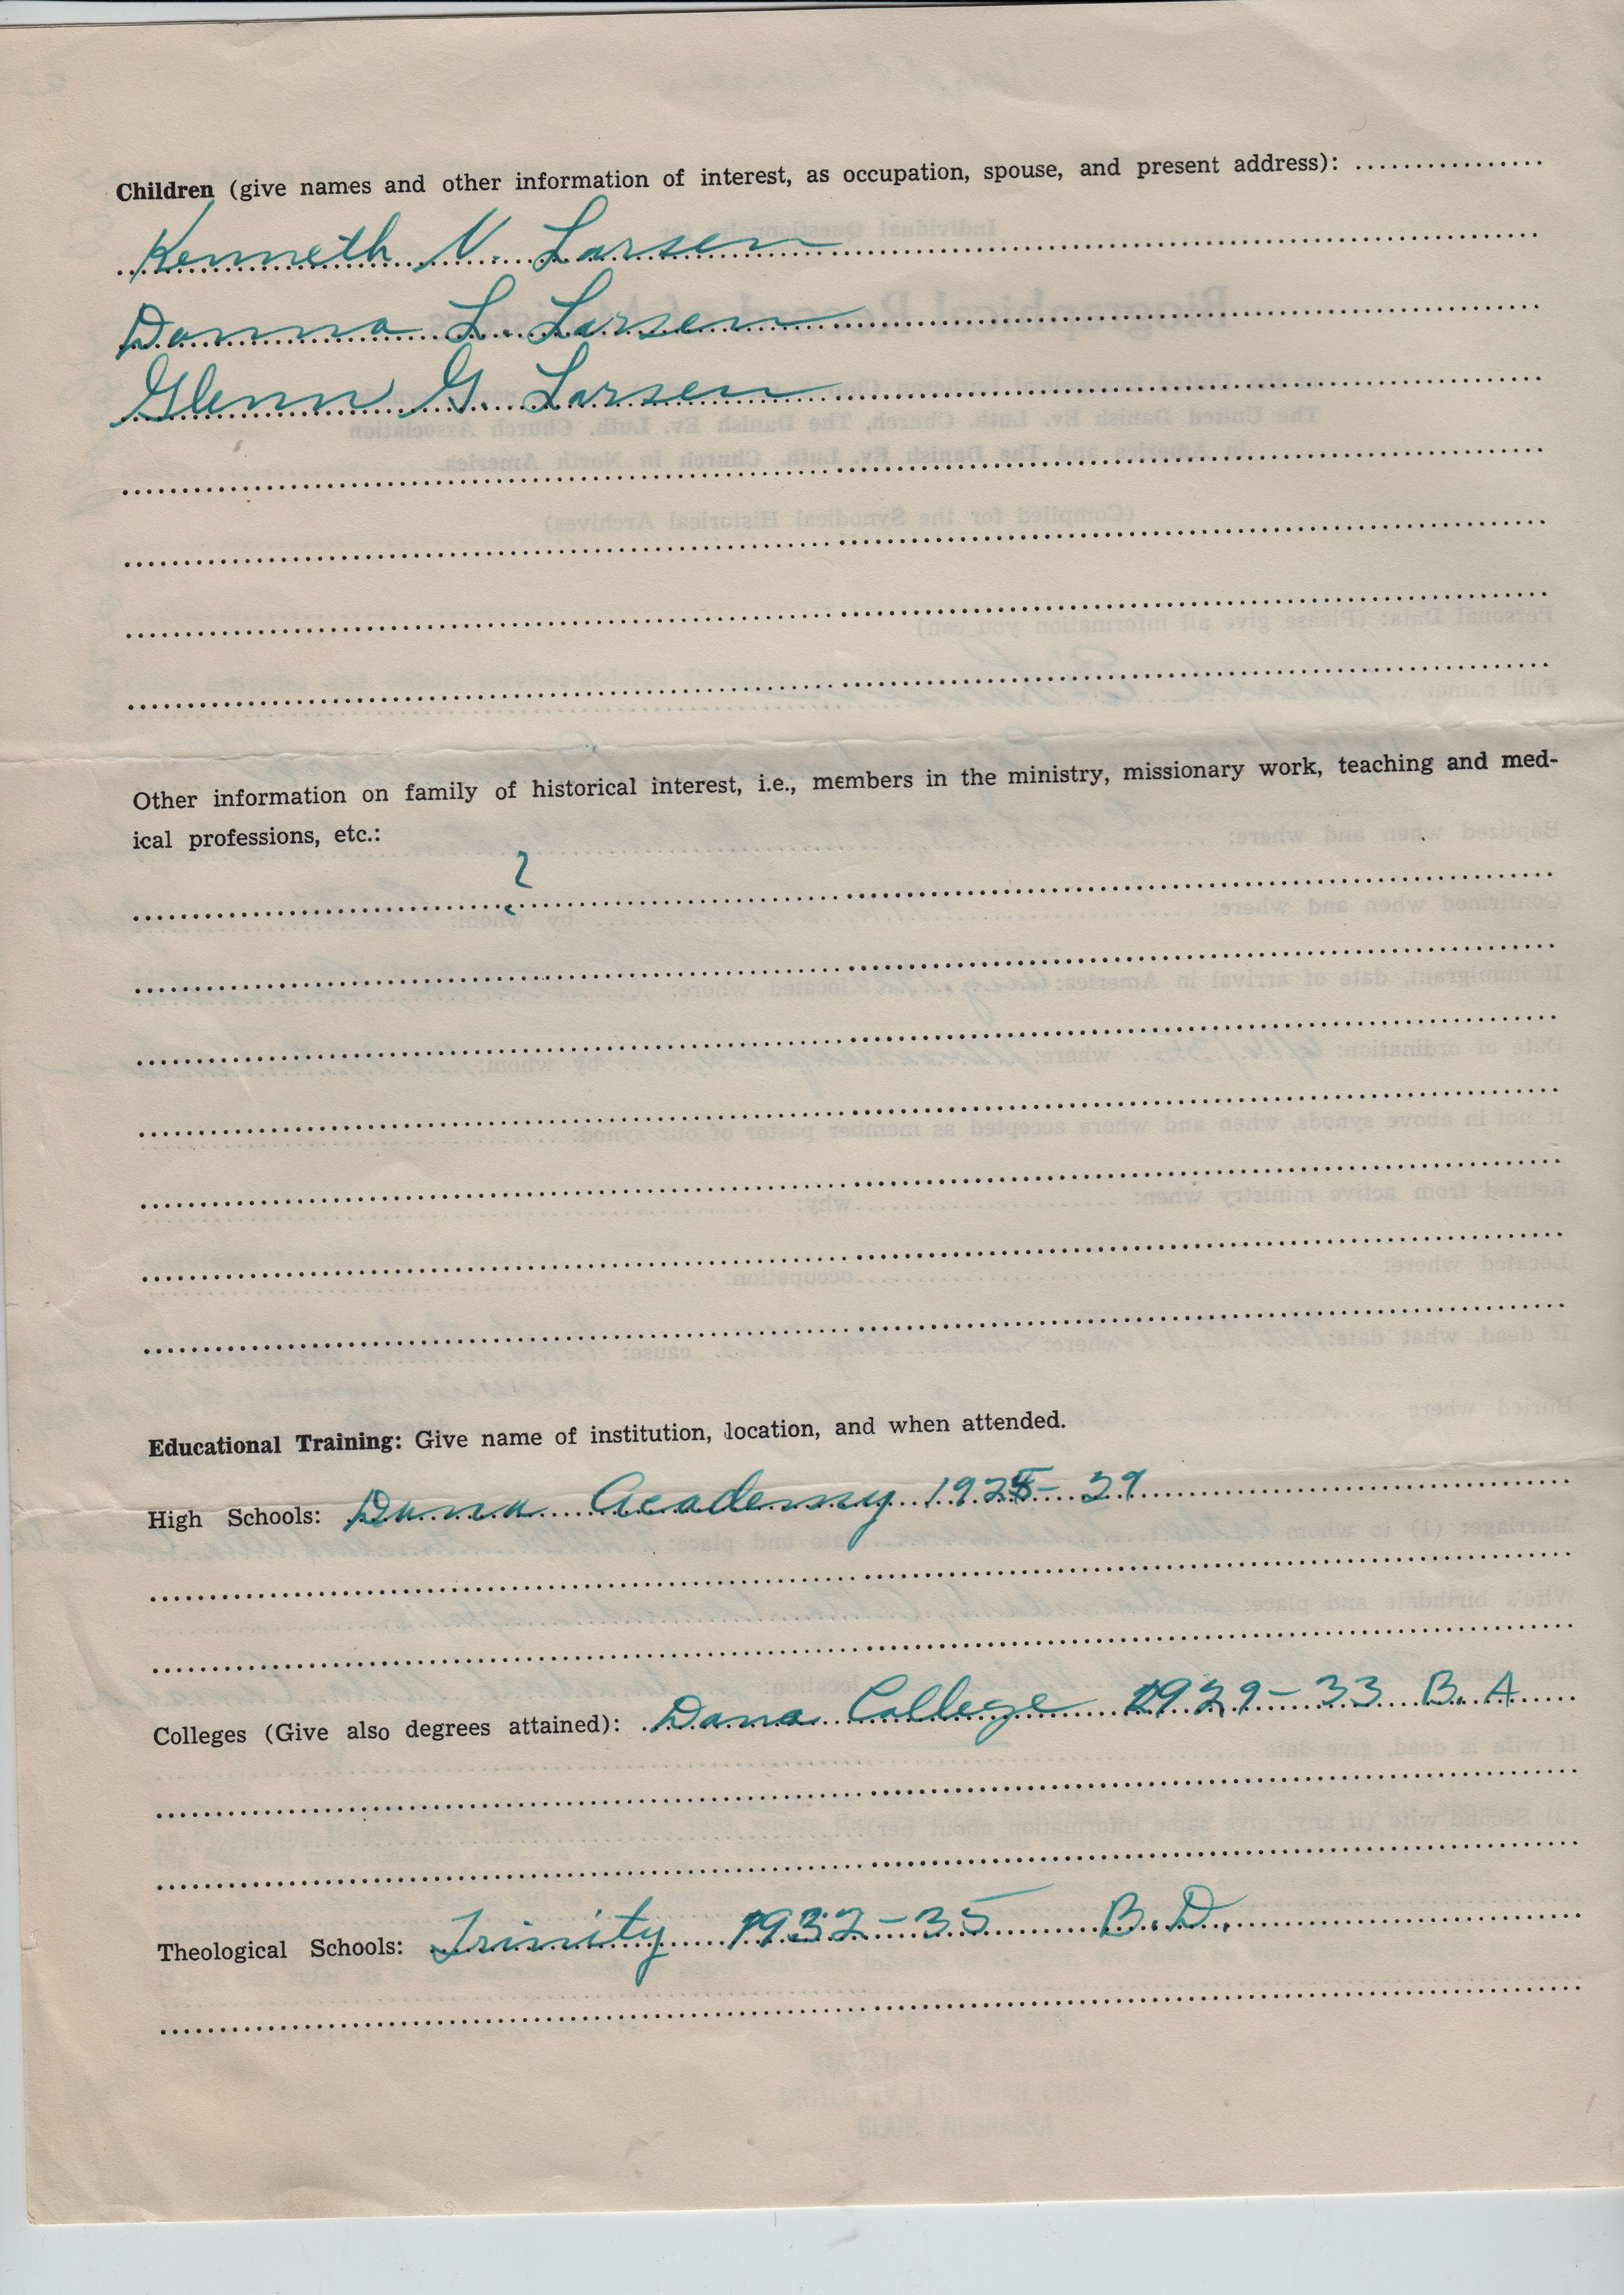 Children (give names and other information of interest, as occupation, spouse, and present address):
Kenneth V. Larsen
Donna L. Larsen
Glenn G. Larsen
Other information on family of historical interest, i.e., members in the ministry, missionary work, teaching and med-
ical professions, etc.:
?
Educational Training: Give name of institution, location, and when attended.
High Schools: Dana Academy 1925-29
Colleges (Give also degrees attained): Dana College 1929-33 B. A
Theological Schools: Trinity 1932-35 B.D.